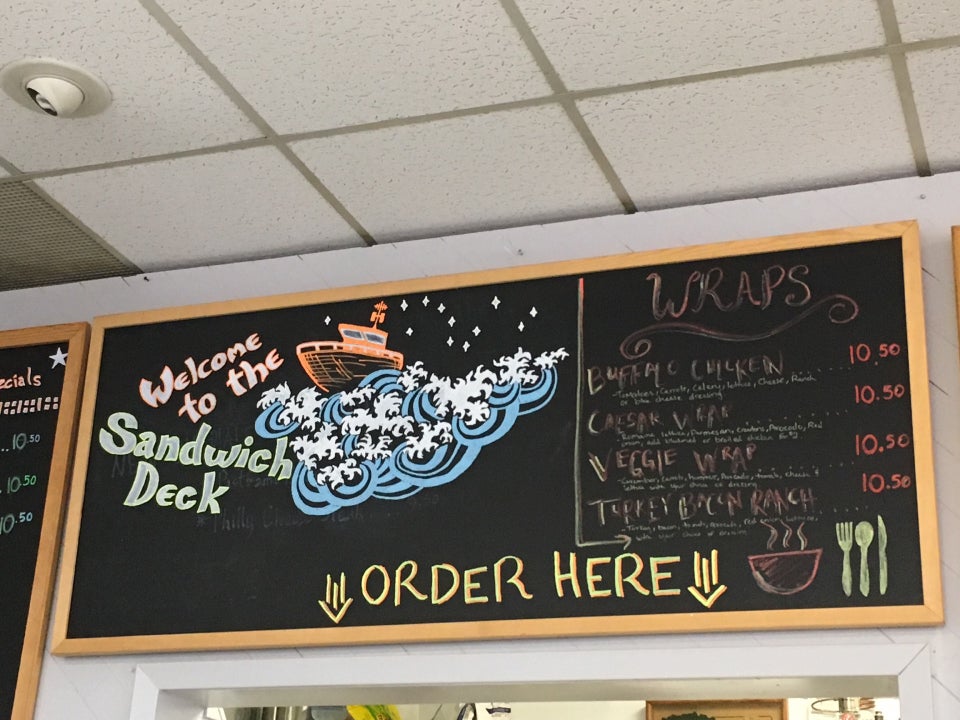 ecials
..10.50
.10.50
10.50
Welcome
to the
Sandwich
Deck
WRAPS
BUFFALO CHICKEN 10.50
-Tomatoes, Carrots, Celery, lettuce, Cheese, Ranch
or blue cheese dressing
CAESAR WRAP ........ 10.50
-Romaine lettuce, Parmesan, croutons, Avocado, Red
onion, add blackened or broiled chicken
VEGGIE WRAP ........ 10.50
-Cucumber, carrots, hummus, Avocado, tomato, cheese &
lettuce with your choice of dressing
TURKEY BACON RANCH 10.50
-Turkey, bacon, tomato, avocado, red
with your choice of dressing
ORDER HERE